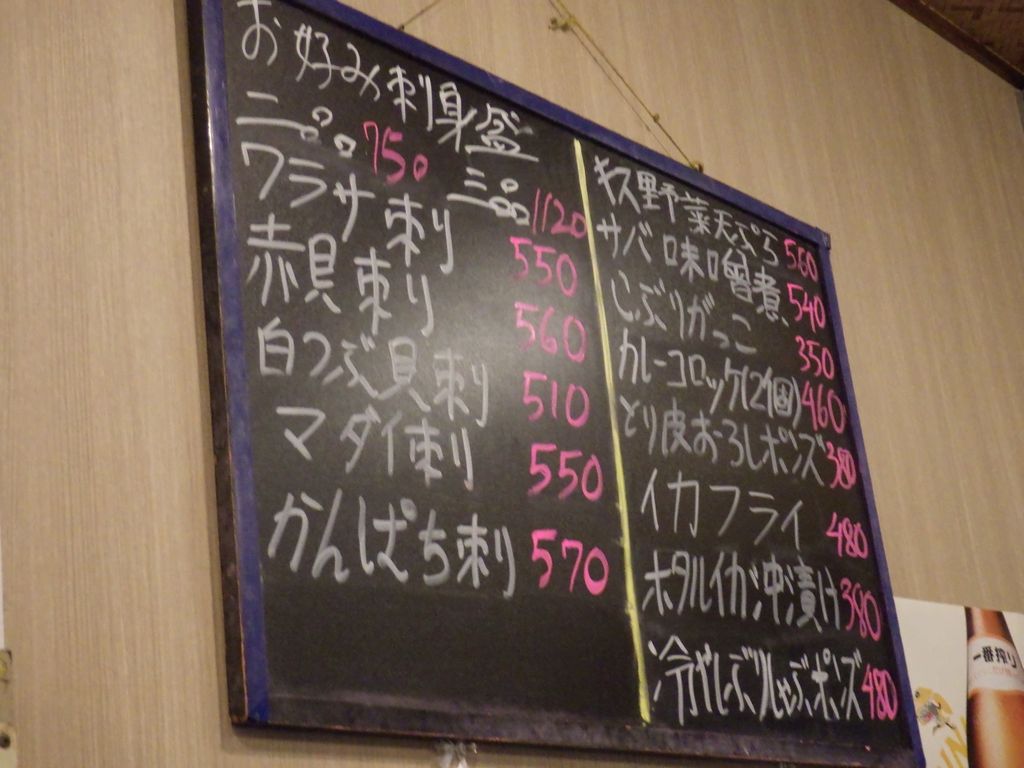 お好み刺身盛
二品750 三品1120
ワラサ刺 550
赤貝刺 560
白つぶ貝刺 510
マダイ刺 550
かんぱち刺 570
秋野菜天ぷら 560
サバ味噌煮 540
いぶりがっこ 350
カレーコロッケ(2個) 460
とり皮おろしポンズ 380
イカフライ 480
ホタルイカ沖漬け 380
冷やしぶりしゃぶポンズ 480
一番搾り